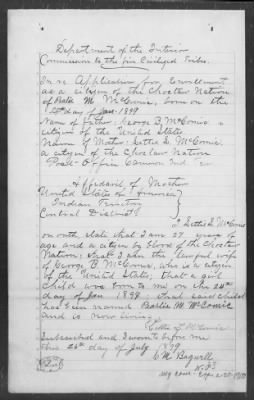 Department of the Interior
Commission to the Five Civilized Tribes.
In re Application for Enrollment
as a citizen of the Choctaw Nation
of M. McComic, born on the
day of Jan 1899
Name of Father: George B. McComic a
citizen of the United States
Name of Mother: Lettie S. McComic,
a citizen of the Choctaw Nation
Post Office Ind Ter
Affidavit of Mother
United States of America
Indian Territory
Central District
I Lettie S McComic
on oath state that I am 27 years of
age and a citizen by blood of the Choctaw
Nation; that I am the lawful wife
of George B. McComic, who is a citizen
of the United States, that a girl
child was born to me on the
day of Jan 1899 that said child
has been named M. McComic
and is now living
Lettie S McComic
Subscribed and sworn to before me
this day of July 1899
Bagwell
N.P.
My com. Exp